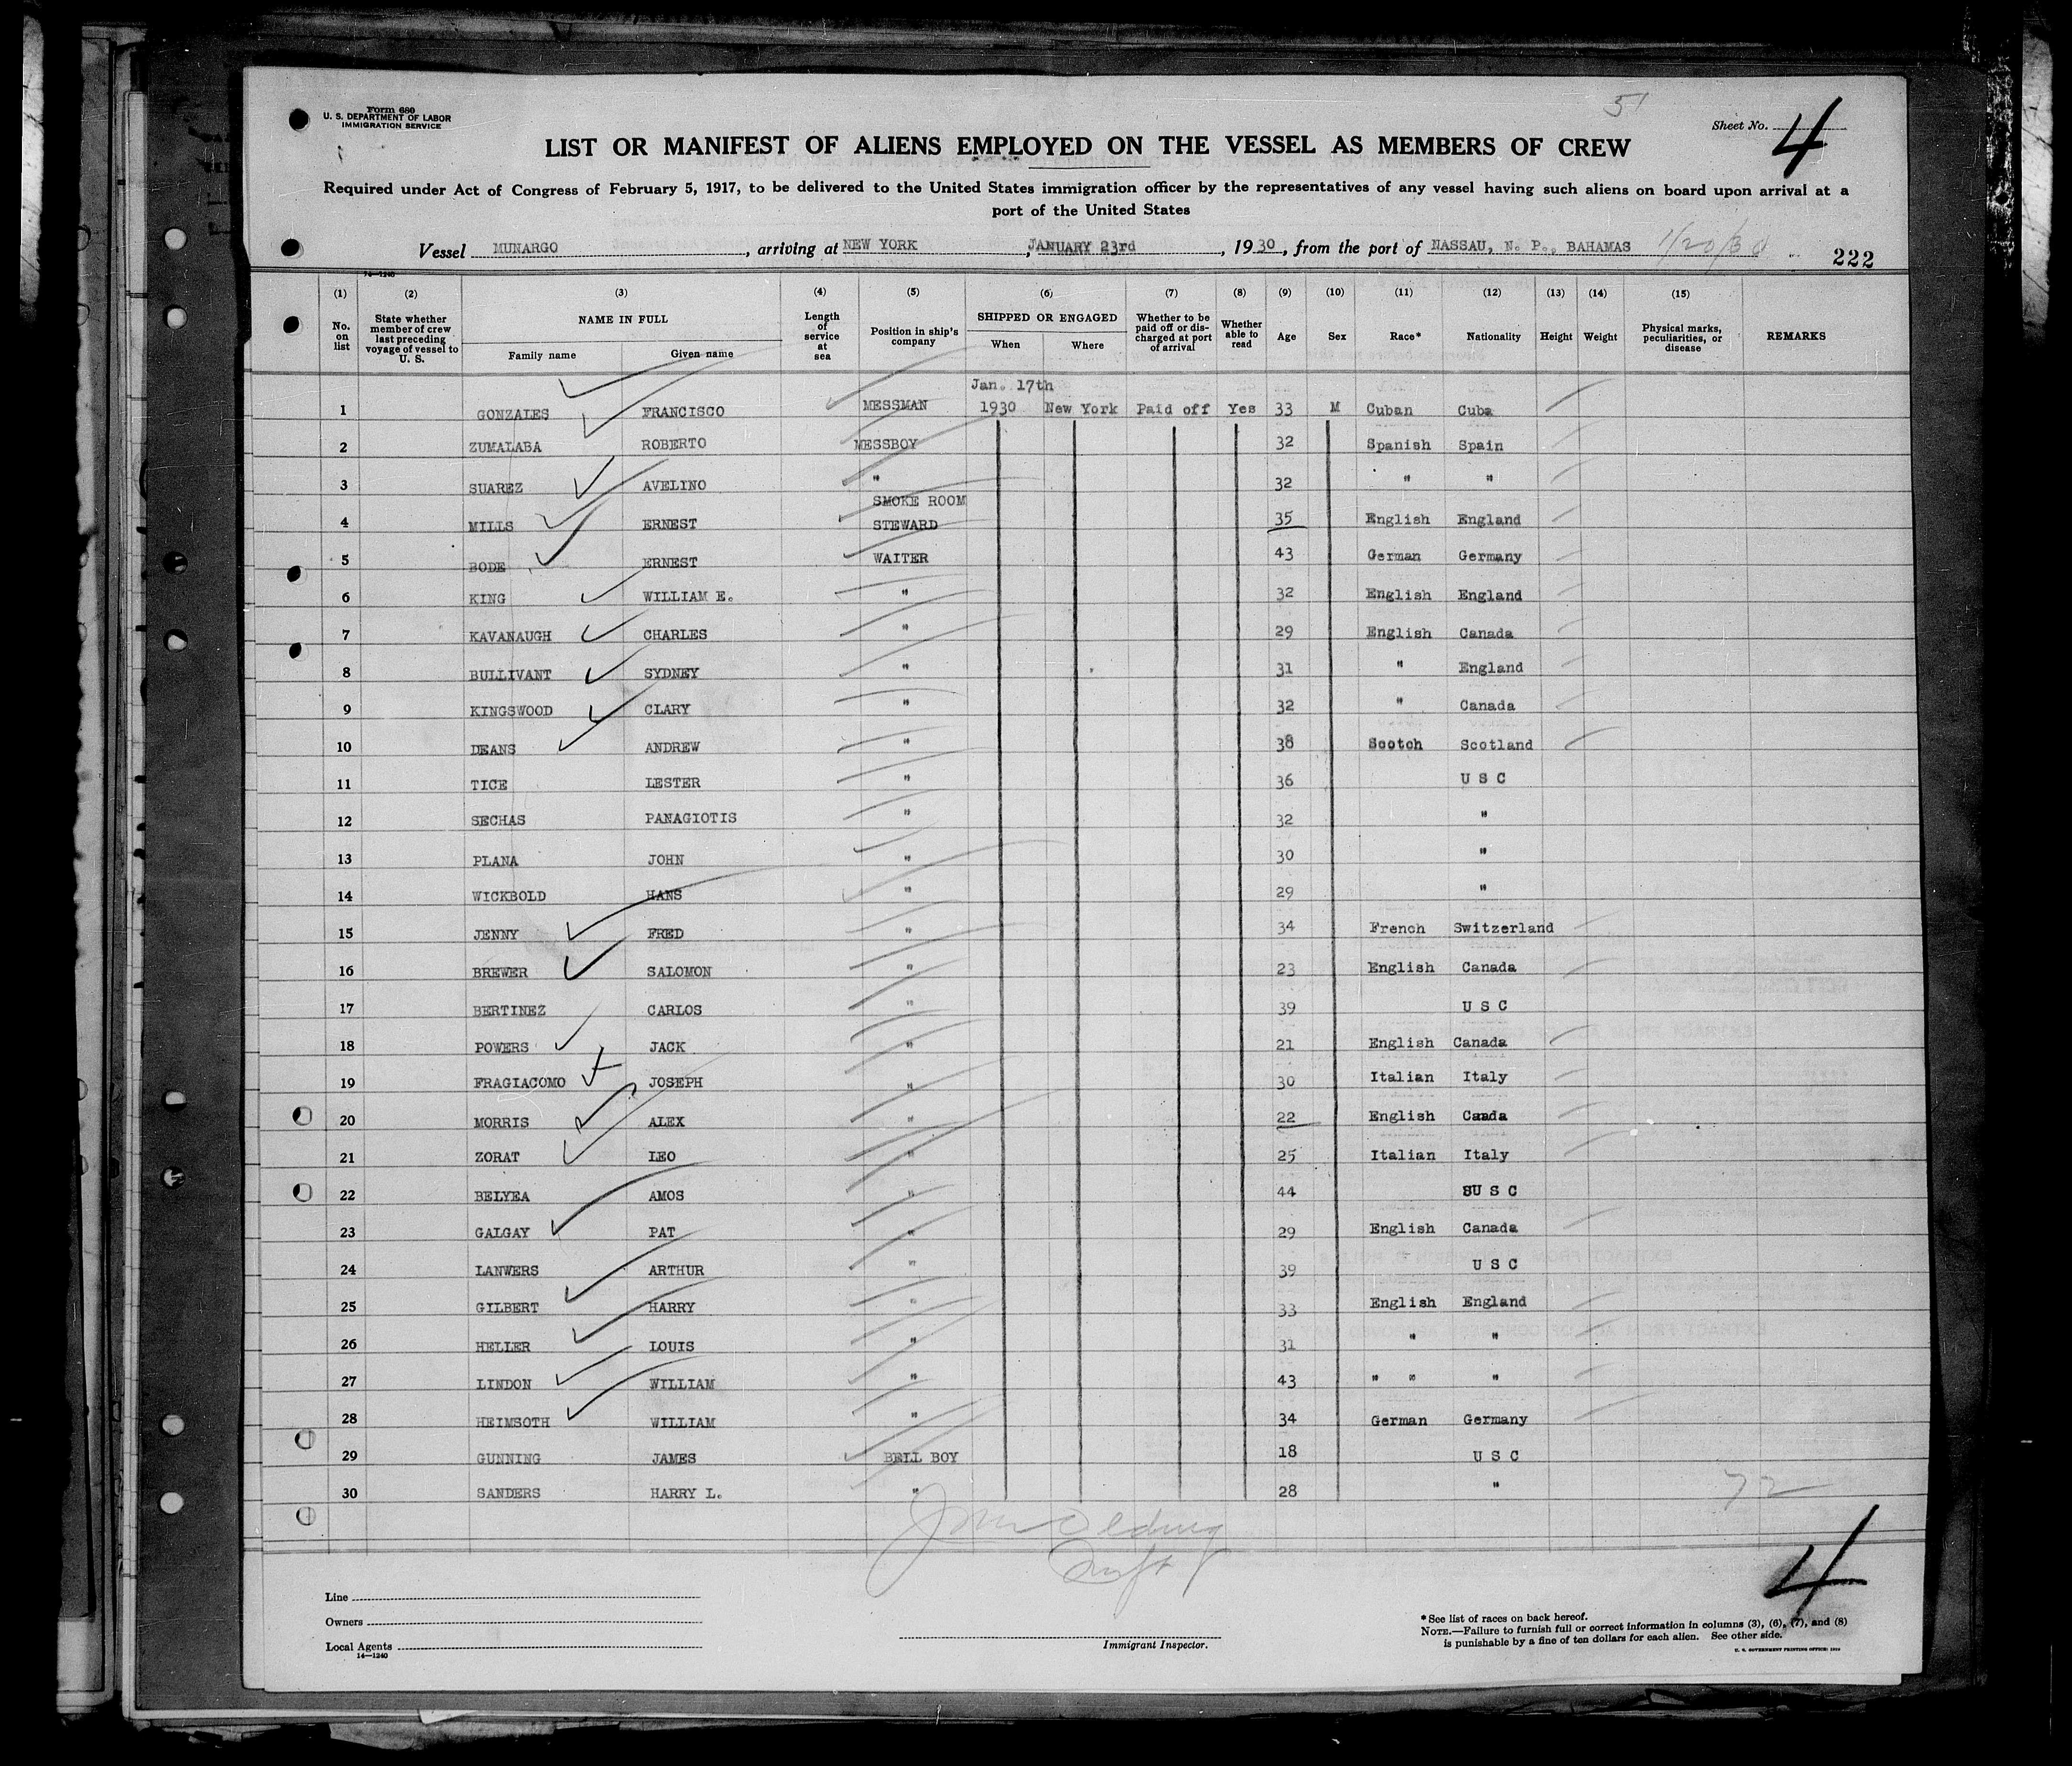 Form 680
U. S. DEPARTMENT OF LABOR
IMMIGRATION SERVICE
51
Sheet No. 4
LIST OR MANIFEST OF ALIENS EMPLOYED ON THE VESSEL AS MEMBERS OF CREW
Required under Act of Congress of February 5, 1917, to be delivered to the United States immigration officer by the representatives of any vessel having such aliens on board upon arrival at a
port of the United States
Vessel MUNARGO, arriving at NEW YORK, JANUARY 23rd, 1930, from the port of NASSAU, N. P., BAHAMAS 1/20/30
222
14—1240
(1) (2) (3) (4) (5) (6) (7) (8) (9) (10) (11) (12) (13) (14) (15)
No. on list
State whether member of crew last preceding voyage of vessel to U. S.
NAME IN FULL
Family name Given name
Length of service at sea
Position in ship's company
SHIPPED OR ENGAGED
When Where
Whether to be paid off or discharged at port of arrival
Whether able to read
Age Sex Race* Nationality Height Weight
Physical marks, peculiarities, or disease
REMARKS
Jan. 17th
1 GONZALES FRANCISCO MESSMAN 1930 New York Paid off Yes 33 M Cuban Cuba
2 ZUMALABA ROBERTO MESSBOY 32 Spanish Spain
3 SUAREZ AVELINO " 32 " "
4 MILLS ERNEST SMOKE ROOM STEWARD 35 English England
5 BODE ERNEST WAITER 43 German Germany
6 KING WILLIAM E. " 32 English England
7 KAVANAUGH CHARLES " 29 English Canada
8 BULLIVANT SYDNEY " 31 " England
9 KINGSWOOD CLARY " 32 " Canada
10 DEANS ANDREW " 38 Scotch Scotland
11 TICE LESTER " 36 U S C
12 SECHAS PANAGIOTIS " 32 "
13 PLANA JOHN " 30 "
14 WICKBOLD HANS " 29 "
15 JENNY FRED " 34 French Switzerland
16 BREWER SALOMON " 23 English Canada
17 BERTINEZ CARLOS " 39 U S C
18 POWERS JACK " 21 English Canada
19 FRAGIACOMO JOSEPH " 30 Italian Italy
20 MORRIS ALEX " 22 English Canada
21 ZORAT LEO " 25 Italian Italy
22 BELYEA AMOS " 44 U S C
23 GALGAY PAT " 29 English Canada
24 LANWERS ARTHUR " 39 U S C
25 GILBERT HARRY " 33 English England
26 HELLER LOUIS " 31 " "
27 LINDON WILLIAM " 43 " " "
28 HEIMSOTH WILLIAM " 34 German Germany
29 GUNNING JAMES BELL BOY 18 U S C
30 SANDERS HARRY L. " 28 "
72
4
Line
Owners
Local Agents
14—1240
Immigrant Inspector.
* See list of races on back hereof.
NOTE.—Failure to furnish full or correct information in columns (3), (6), (7), and (8)
is punishable by a fine of ten dollars for each alien. See other side.